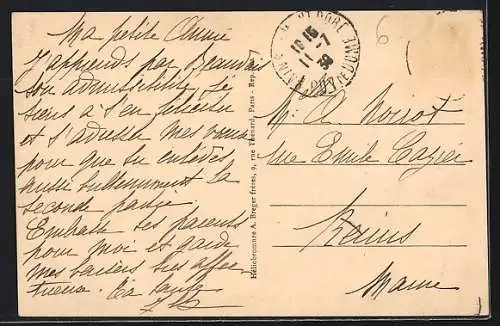 Ma petite Annie
J'apprends par Beauvais
son admissibilité, je
tiens à t'en féliciter
et t'adresse mes vœux
pour que tu enlèves
aussi brillamment la
seconde partie
Embrasse tes parents
pour moi et garde
mes baisers très affec
tueux. Ta tante
Héliobromure A. Breger frères, 9, rue Thénard, Paris - Rep.
PUY DE DOME
18 15
11 - 7
38
6
M. A. Noirot
rue Emile Cazier
Reims
Marne